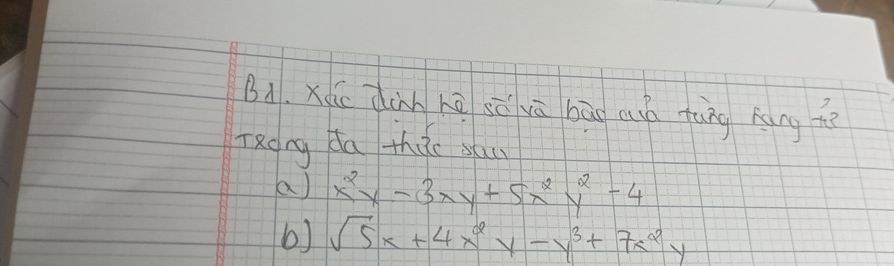 B1. Xác định hệ số và bậc của từng hạng tử
Trong đa thức sau
a) x²y - 3xy + 5x²y² - 4
b) √5x + 4x²y - y³ + 7x²y